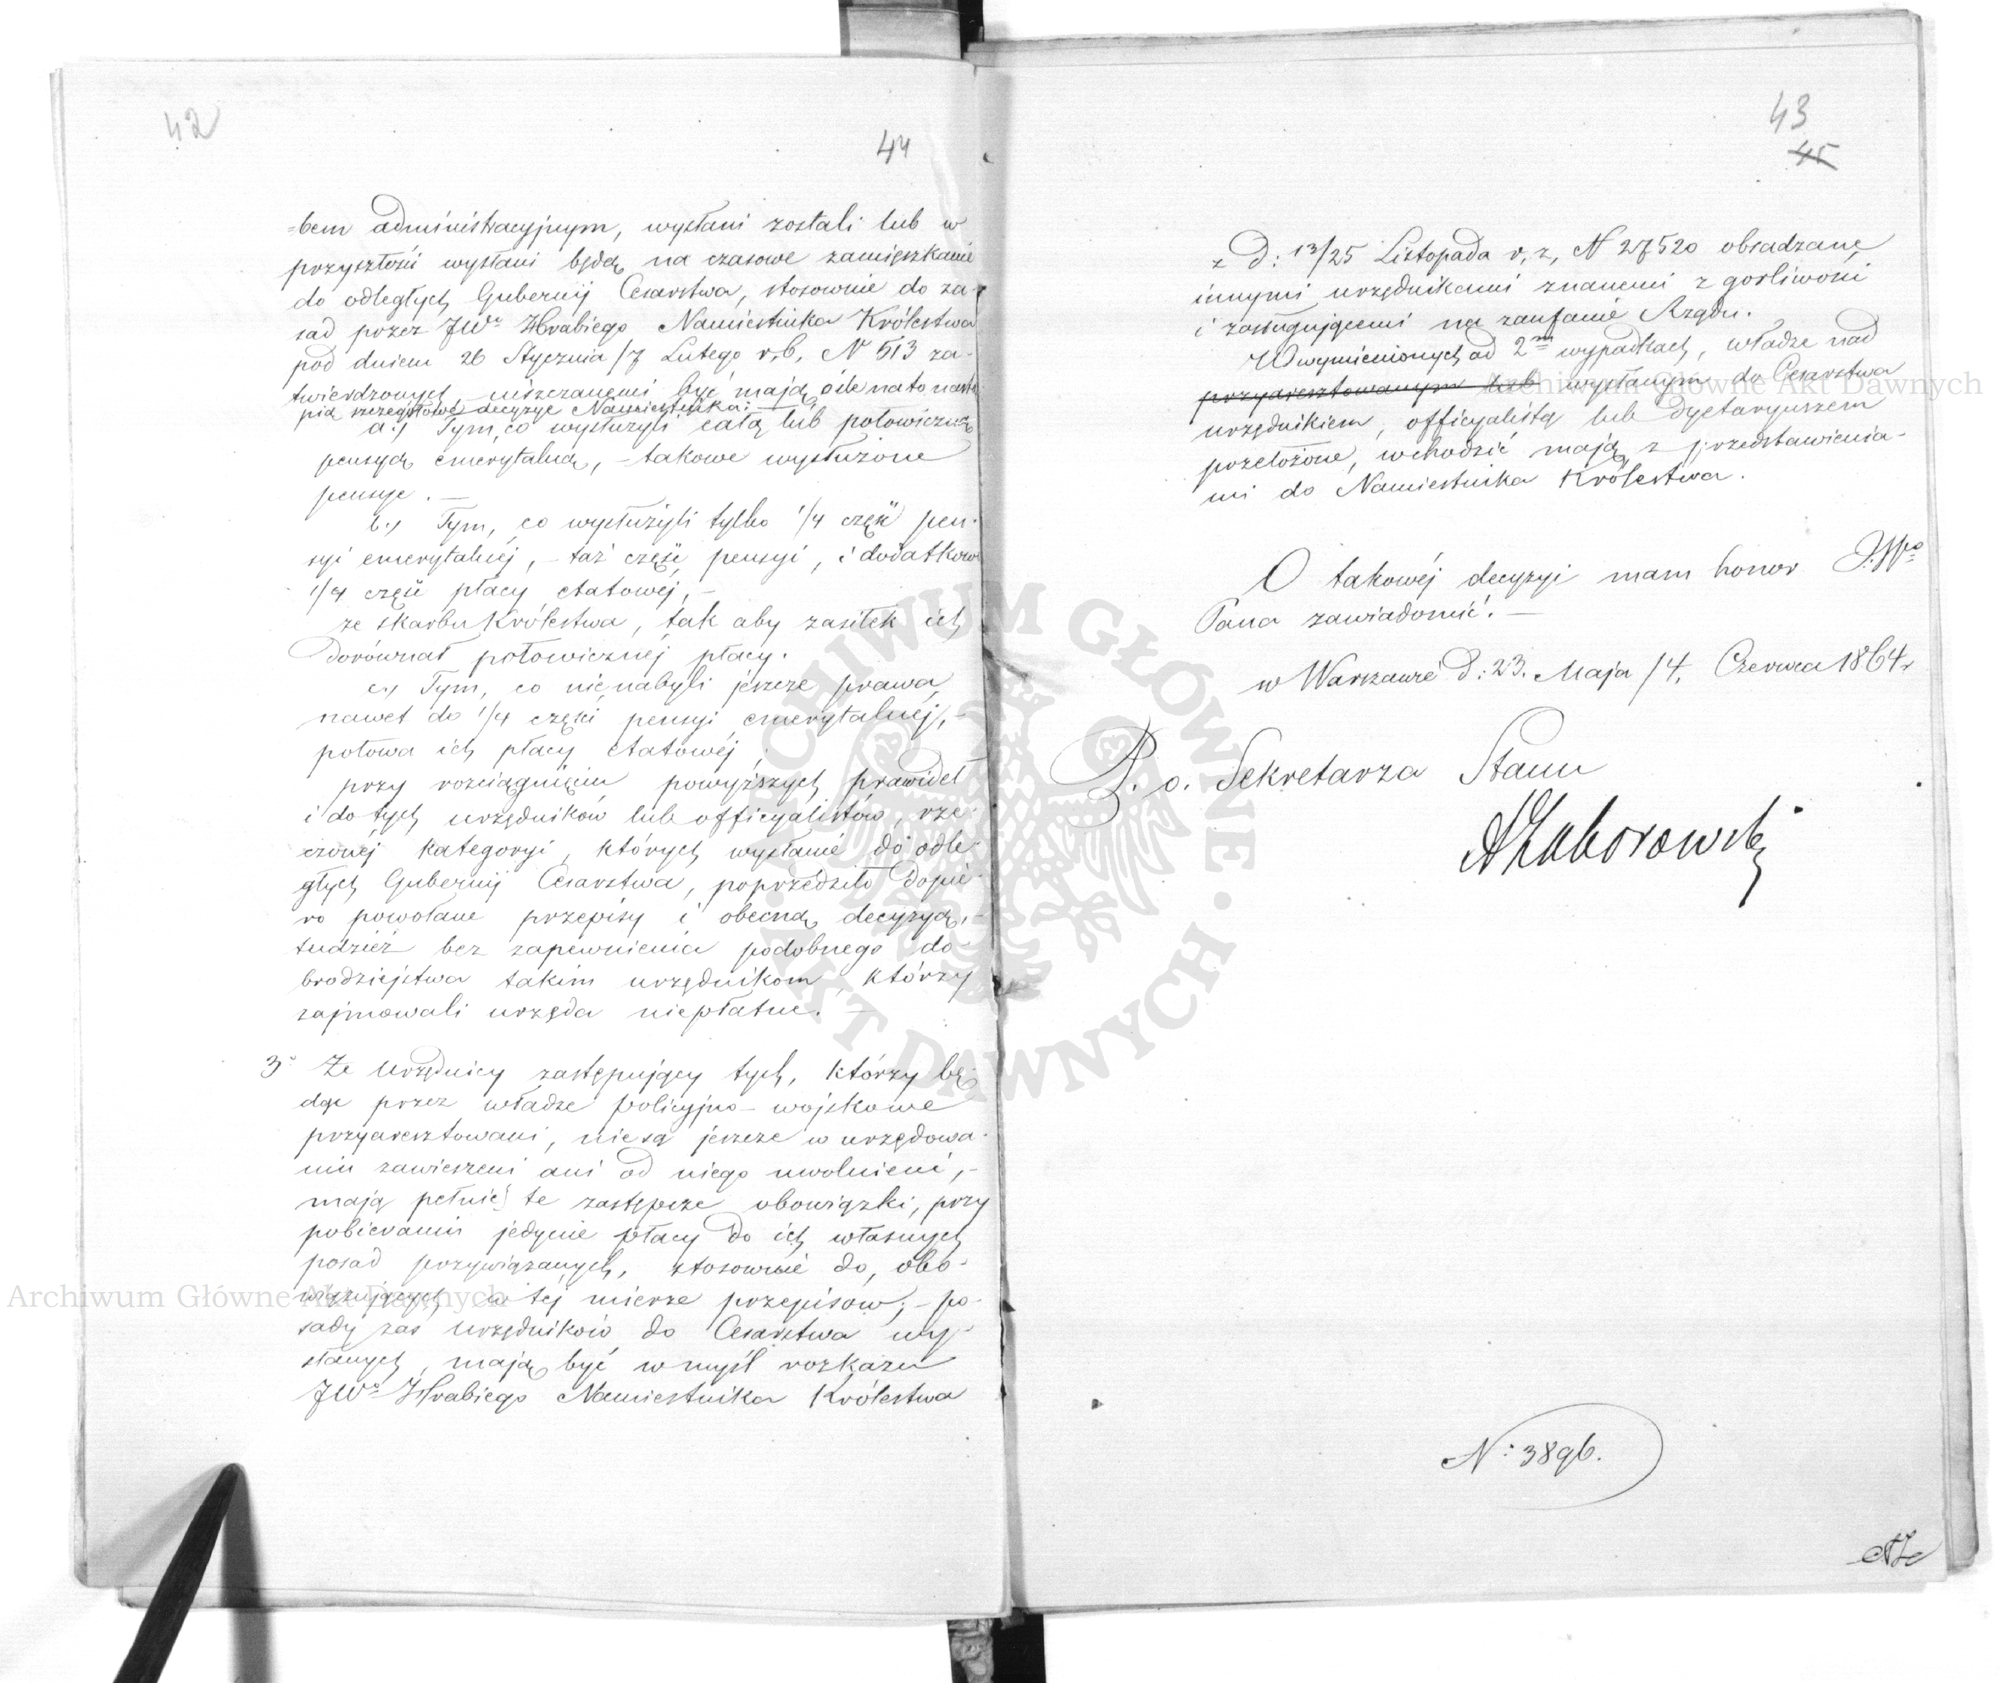 42
44
=bem administracyjnym, wysłani zostali lub w
przyszłości wysłani będą na czasowe zamieszkanie
do odległych Gubernij Cesarstwa, stosownie do za-
sad przez JWo Hrabiego Namiestnika Królestwa
pod dniem 26 Stycznia/7 Lutego r.b. N 513 za-
twierdzonych uiszczanemi być mają, o ile na to nastą-
pią szczegółowe decyzye Namiestnika:
a.) Tym, co wysłużyli całą lub połowiczną
pensyą emerytalną, – takowe wysłużone
pensye. —
b.) Tym, co wysłużyli tylko 1/4 część pen-
syi emerytalnej, – taż część pensyi, i dodatkowo
1/4 część płacy etatowéj, –
ze skarbu Królestwa, tak aby zasiłek ich
dorównał połowicznéj płacy.
c.) Tym, co nienabyli jeszcze prawa,
nawet do 1/4 części pensyi emerytalnéj, –
połowa ich płacy etatowéj;
przy rozciągnięciu powyższych prawideł
i do tych urzędników lub officyalistów, rze-
czonéj kategoryi, których wysłanie do odle-
głych Gubernij Cesarstwa, poprzedziło dopie-
ro powołane przepisy i obecną decyzyą, –
tudzież bez zapewnienia podobnego do-
brodziejstwa takim urzędnikom, którzy
zajmowali urzęda niepłatne. —
3° Że Urzędnicy zastępujący tych, którzy bę-
dąc przez władze policyjno-wojskowe
przyaresztowani, nie są jeszcze w urzędowa-
niu zawieszeni ani od niego uwolnieni, –
mają pełnić te zastępcze obowiązki, przy
pobieraniu jedynie płacy do ich własnych
posad przywiązanych, stosownie do, obo-
wiązujących w téj mierze przepisów; – po-
sady zaś Urzędników do Cesarstwa wy-
słanych, mają być w myśl rozkazu
JWo Hrabiego Namiestnika Królestwa
43
45
z d: 13/25 Listopada r. z. N 27520 obsadzane
innymi urzędnikami znanemi z gorliwości
i zasługującemi na zaufanie Rządu.
W wymienionych ad 2m wypadkach, władze nad
przyaresztowanym lub wysłanym do Cesarstwa
urzędnikiem, officyalistą lub dyetaryuszem
przełożone, wchodzić mają z przedstawienia-
mi do Namiestnika Królestwa.
O takowéj decyzyi mam honor JWo
Pana zawiadomić. —
w Warszawie d: 23. Maja/4. Czerwca 1864 r
P. o. Sekretarza Stanu
AZaborowski
N: 3896.
AZ
ARCHIWUM GŁÓWNE AKT DAWNYCH
Archiwum Główne Akt Dawnych
Archiwum Główne Akt Dawnych